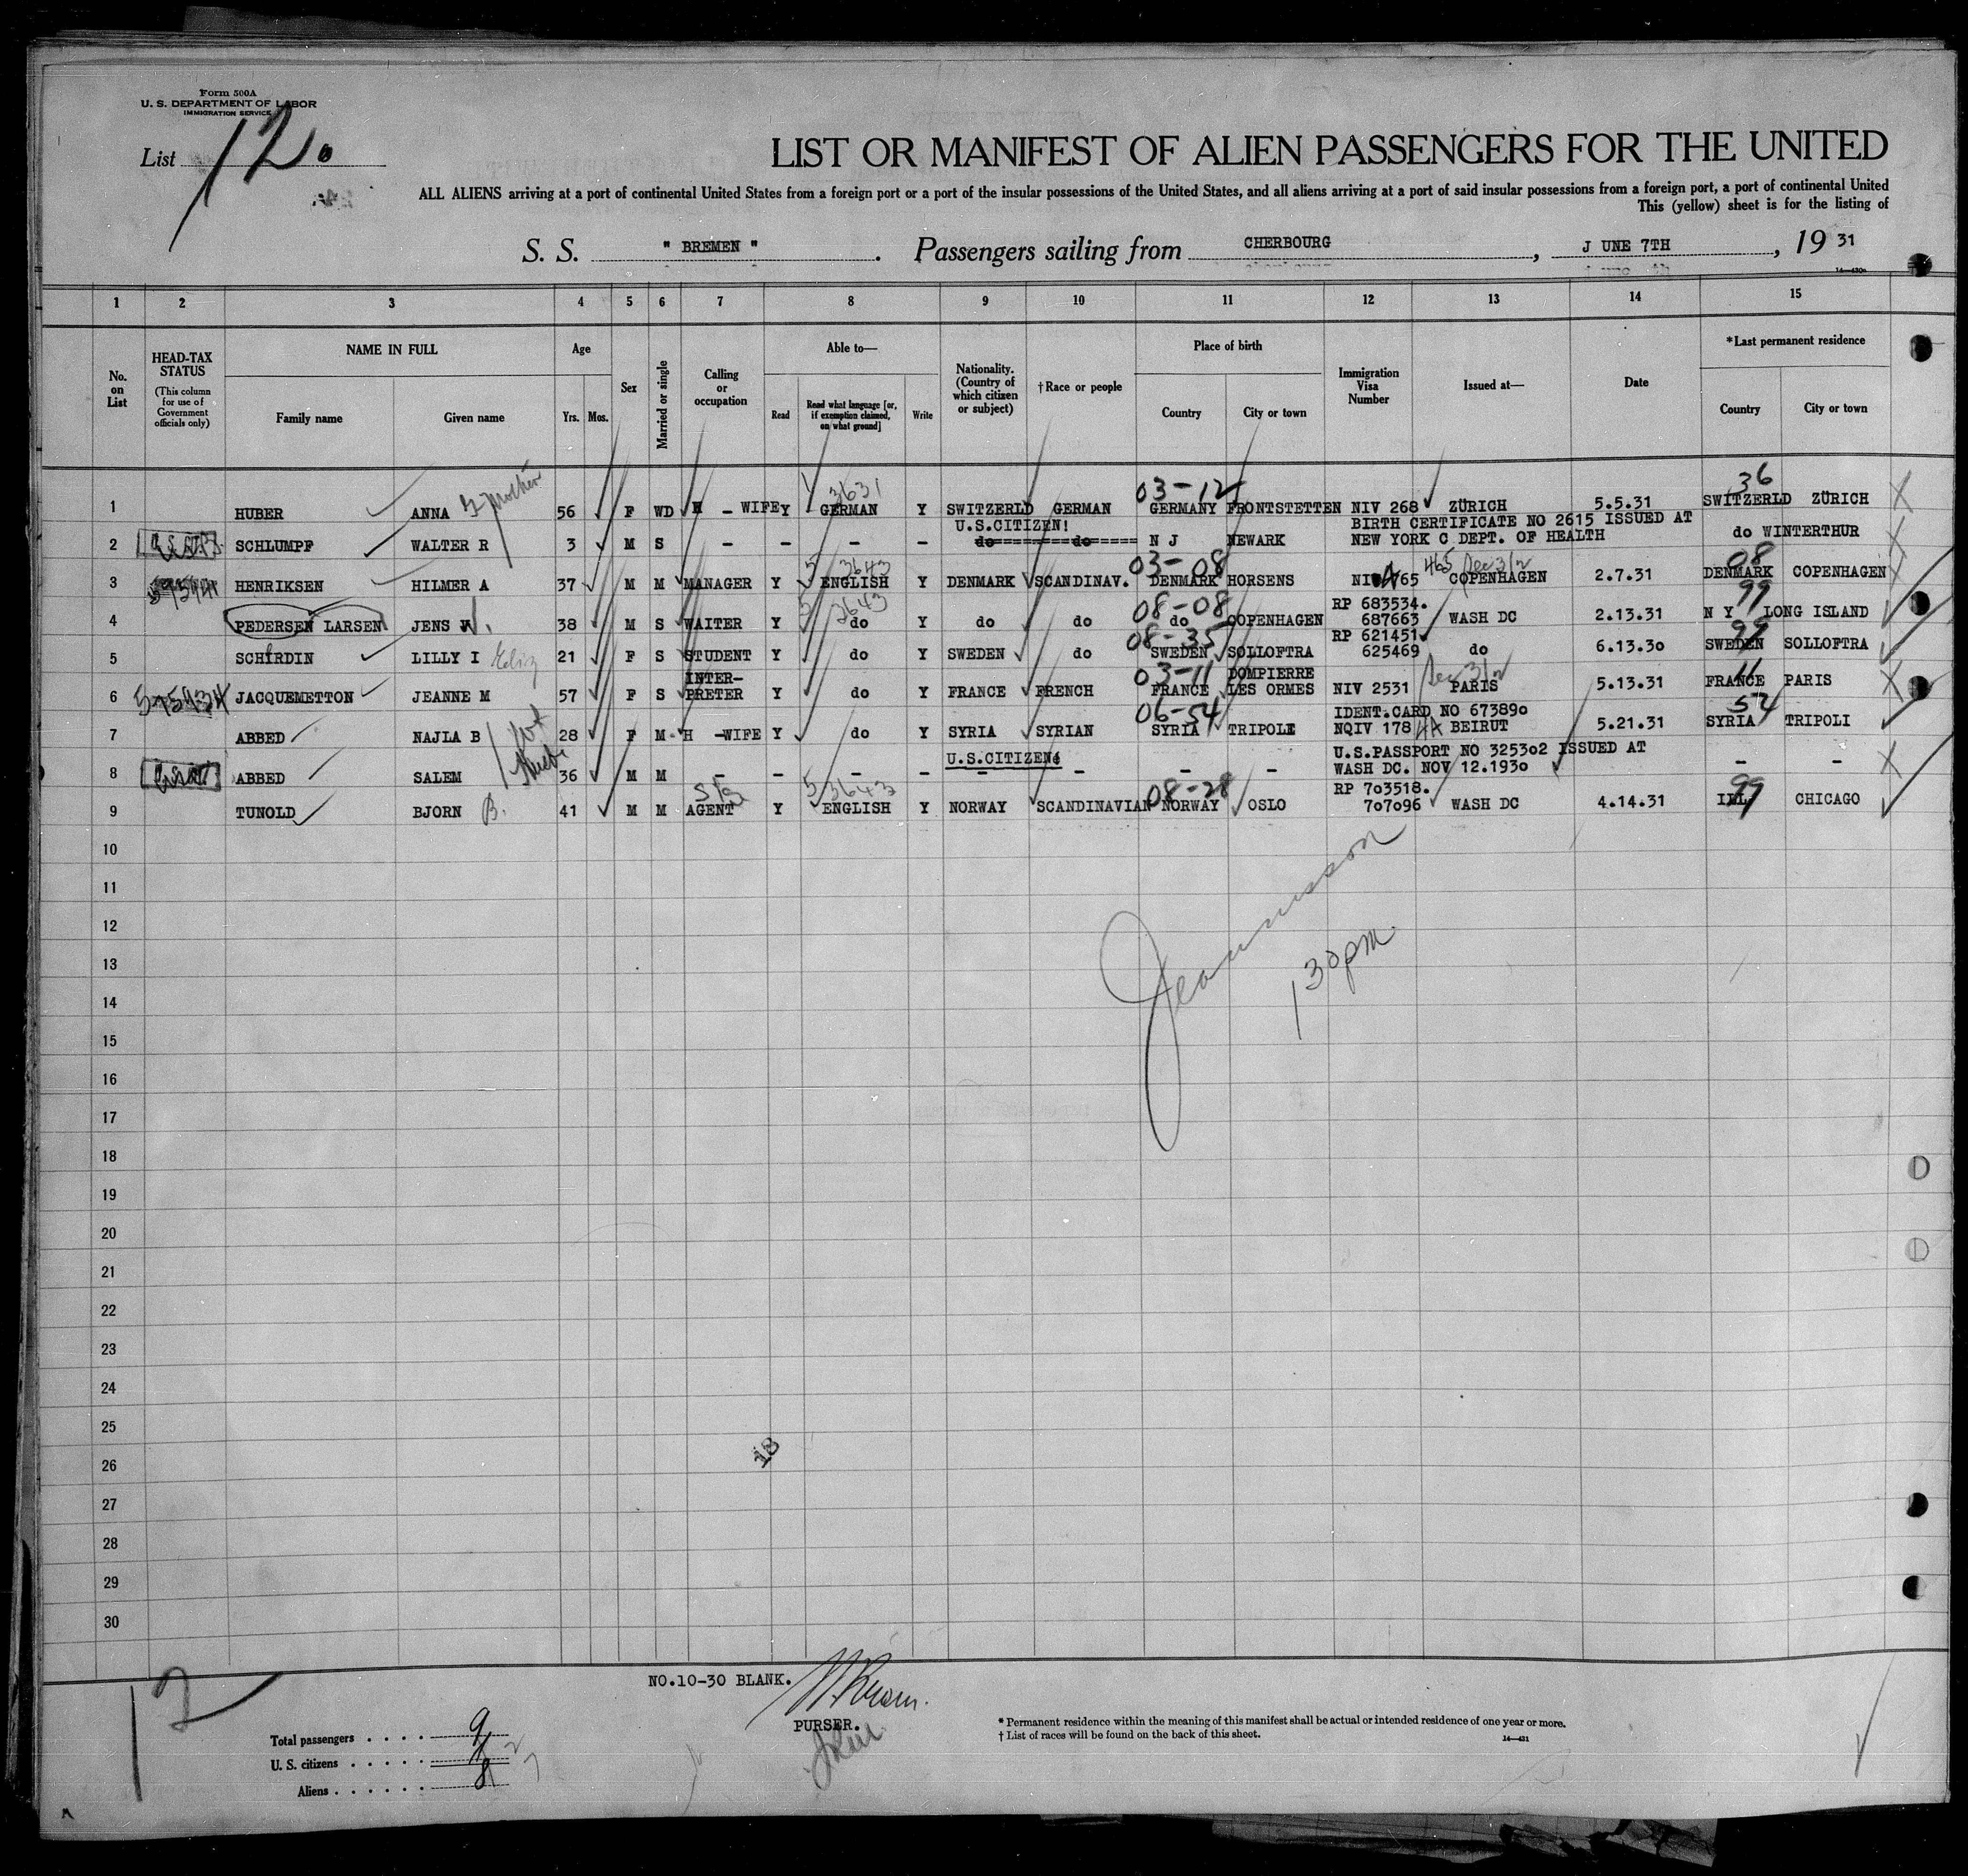 Form 500A
U. S. DEPARTMENT OF LABOR
IMMIGRATION SERVICE
List 120
LIST OR MANIFEST OF ALIEN PASSENGERS FOR THE UNITED
ALL ALIENS arriving at a port of continental United States from a foreign port or a port of the insular possessions of the United States, and all aliens arriving at a port of said insular possessions from a foreign port, a port of continental United
This (yellow) sheet is for the listing of
S. S. " BREMEN ". Passengers sailing from CHERBOURG, J UNE 7TH, 19 31
14—430a
1 2 3 4 5 6 7 8 9 10 11 12 13 14 15
No. on List
HEAD-TAX STATUS
(This column for use of Government officials only)
NAME IN FULL
Family name Given name
Age
Yrs. Mos.
Sex
Married or single
Calling or occupation
Able to—
Read
Read what language [or, if exemption claimed, on what ground]
Write
Nationality. (Country of which citizen or subject)
†Race or people
Place of birth
Country City or town
Immigration Visa Number
Issued at—
Date
*Last permanent residence
Country City or town
3631 03-12 36
1 HUBER ANNA G Mother 56 F WD H - WIFE Y GERMAN Y SWITZERLD GERMAN GERMANY FRONTSTETTEN NIV 268 ZÜRICH 5.5.31 SWITZERLD ZÜRICH
U.S.CITIZEN! BIRTH CERTIFICATE NO 2615 ISSUED AT
2 SCHLUMPF WALTER R 3 M S - - - - do======do===== N J NEWARK NEW YORK C DEPT. OF HEALTH do WINTERTHUR
5 3643 03-08 465 Dec 31/2 08
3 HENRIKSEN HILMER A 37 M M MANAGER Y ENGLISH Y DENMARK SCANDINAV. DENMARK HORSENS 765 COPENHAGEN 2.7.31 DENMARK COPENHAGEN
5 3643 08-08 RP 683534. 99
4 PEDERSEN LARSEN JENS 38 M S WAITER Y do Y do do do COPENHAGEN 687663 WASH DC 2.13.31 N Y LONG ISLAND
08-35 RP 621451 99
5 SCHIRDIN LILLY I 21 F S STUDENT Y do Y SWEDEN do SWEDEN SOLLOFTRA 625469 do 6.13.30 SWEDEN SOLLOFTRA
INTER- 03-11 DOMPIERRE Dec 31/2 11
6 JACQUEMETTON JEANNE M 57 F S PRETER Y do Y FRANCE FRENCH FRANCE LES ORMES NIV 2531 PARIS 5.13.31 FRANCE PARIS
06-54 IDENT.CARD NO 673890 54
7 ABBED NAJLA B 28 F M H -WIFE Y do Y SYRIA SYRIAN SYRIA TRIPOLE NQIV 178 BEIRUT 5.21.31 SYRIA TRIPOLI
U.S.CITIZEN! U.S.PASSPORT NO 325302 ISSUED AT
8 ABBED SALEM 36 M M - - - - - - - - WASH DC. NOV 12.1930 - -
5 3643 08-28 RP 703518. 99
9 TUNOLD BJORN B. 41 M M AGENT Y ENGLISH Y NORWAY SCANDINAVIAN NORWAY OSLO 707096 WASH DC 4.14.31 ILL CHICAGO
10
11
12
13
130pm
14
15
16
17
18
19
20
21
22
23
24
25
26
27
28
29
30
12
NO.10-30 BLANK.
PURSER.
Total passengers . . . . 9
U. S. citizens . . . . . 2
Aliens . . . . . . 7
* Permanent residence within the meaning of this manifest shall be actual or intended residence of one year or more.
† List of races will be found on the back of this sheet.
14—431